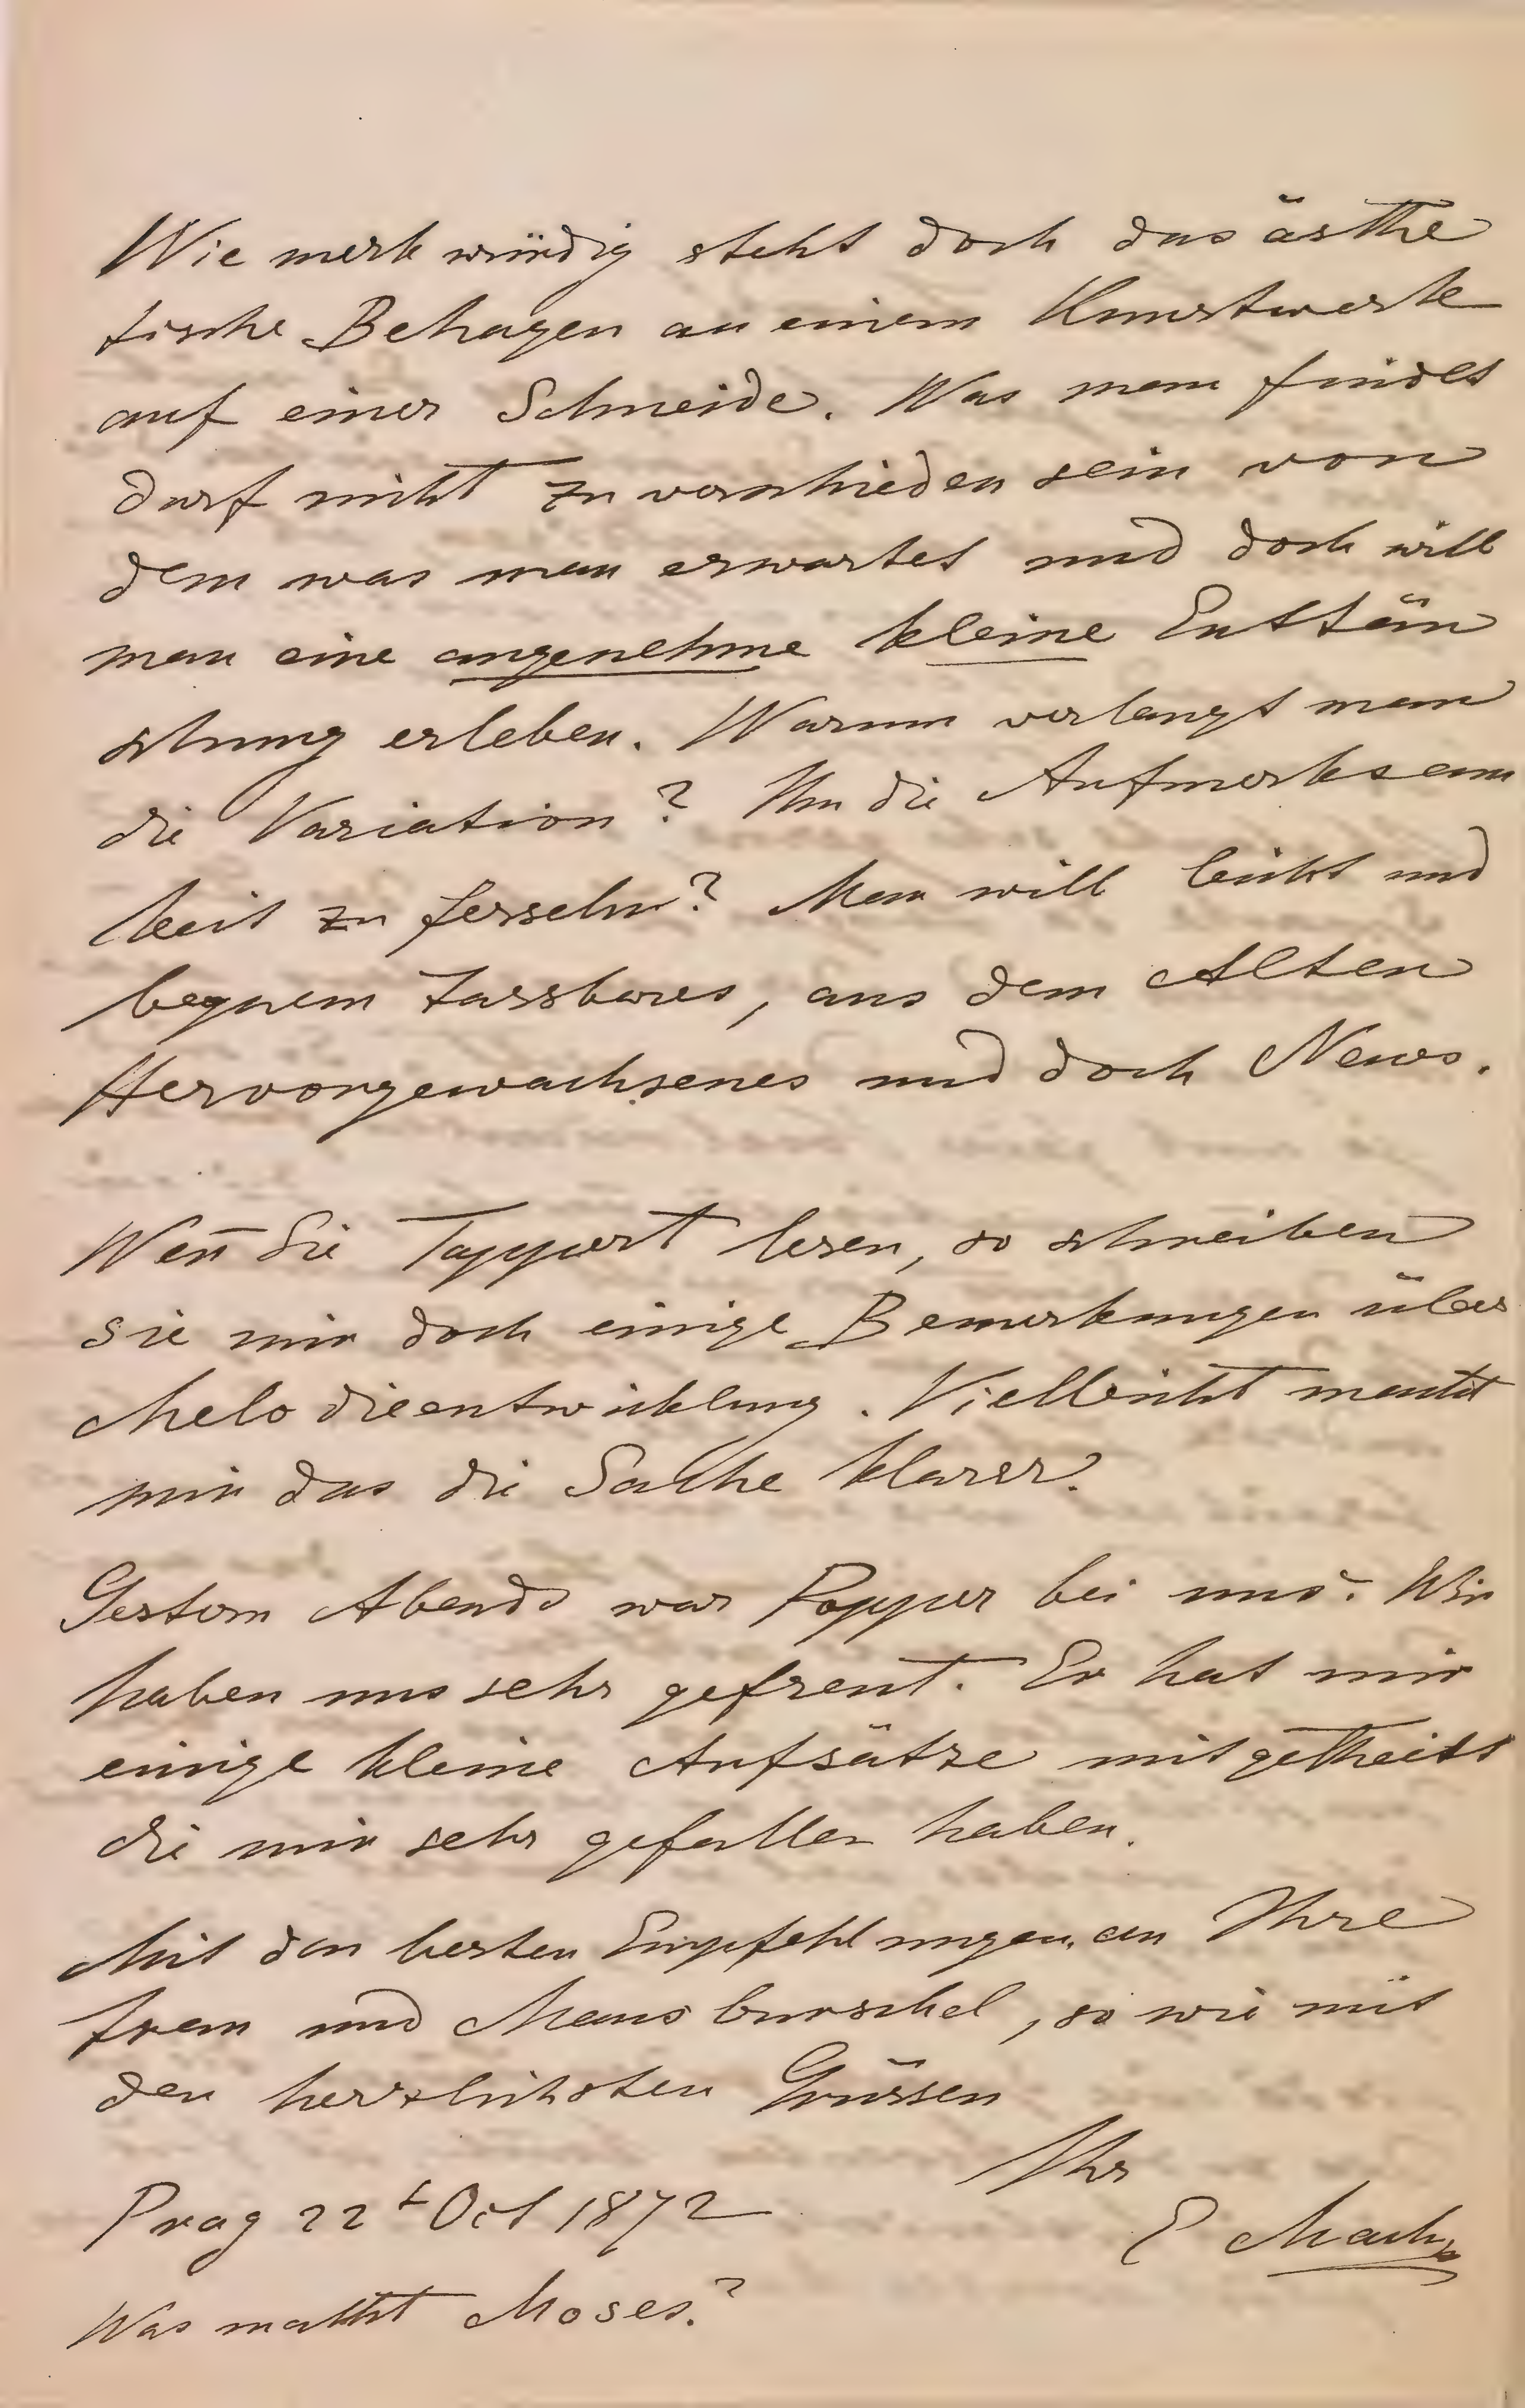 Wie merkwürdig steht doch das ästhe
tische Behagen an einem Kunstwerke
auf einer Schneide. Was man findet
darf nicht zu verschieden sein von
dem was man erwartet und doch will
man eine angenehme kleine Enttäu
schung erleben. Warum verlangt man
die Variation? Um die Aufmerksam
keit zu fesseln? Man will leicht und
bequem Fassbares, aus dem Alten
Hervorgewachsenes und doch Neues.
Wen̄ Sie Tappert lesen, so schreiben
Sie mir doch einige Bemerkungen über
Melodieentwicklung. Vielleicht macht
mir das die Sache klarer.
Gestern Abends war Popper bei uns. Wir
haben uns sehr gefreut. Er hat mir
einige kleine Aufsätze mitgetheilt
die mir sehr gefallen haben.
Mit den besten Empfehlungen an Ihre
Frau und Mausburschel, so wie mit
den herzlichsten Grüssen
Ihr
Prag 22t Oct 1872
E Mach
Was macht Moses?